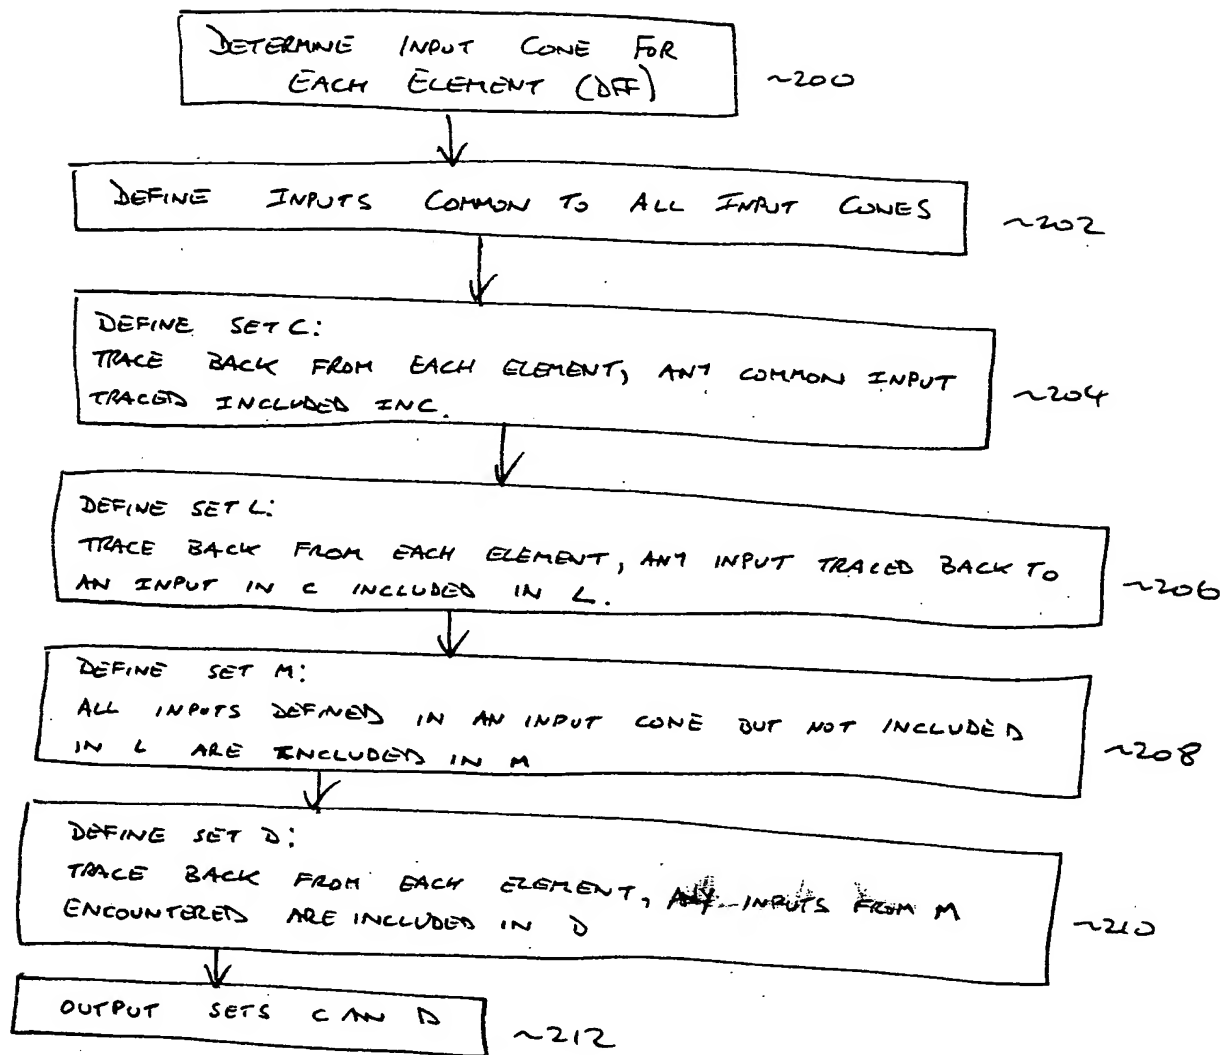 DETERMINE INPUT CONE FOR
EACH ELEMENT (DFF)
~200
DEFINE INPUTS COMMON TO ALL INPUT CONES
~202
DEFINE SET C:
TRACE BACK FROM EACH ELEMENT, ANY COMMON INPUT
TRACED INCLUDED INC.
~204
DEFINE SET L:
TRACE BACK FROM EACH ELEMENT, ANY INPUT TRACED BACK TO
AN INPUT IN C INCLUDED IN L.
~206
DEFINE SET M:
ALL INPUTS DEFINED IN AN INPUT CONE BUT NOT INCLUDED
IN L ARE INCLUDED IN M
~208
DEFINE SET D:
TRACE BACK FROM EACH ELEMENT, ANY INPUTS FROM M
ENCOUNTERED ARE INCLUDED IN D
~210
OUTPUT SETS C AN D
~212